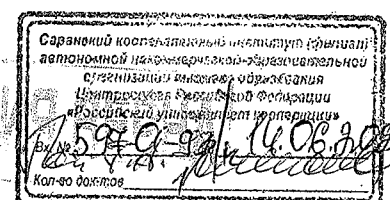 Саранский кооперативный институт (филиал)
автономной некоммерческой образовательной
организации высшего образования
Центросоюза Российской Федерации
«Российский университет кооперации»
Вх. № 14.06.202
Кол-во док-тов